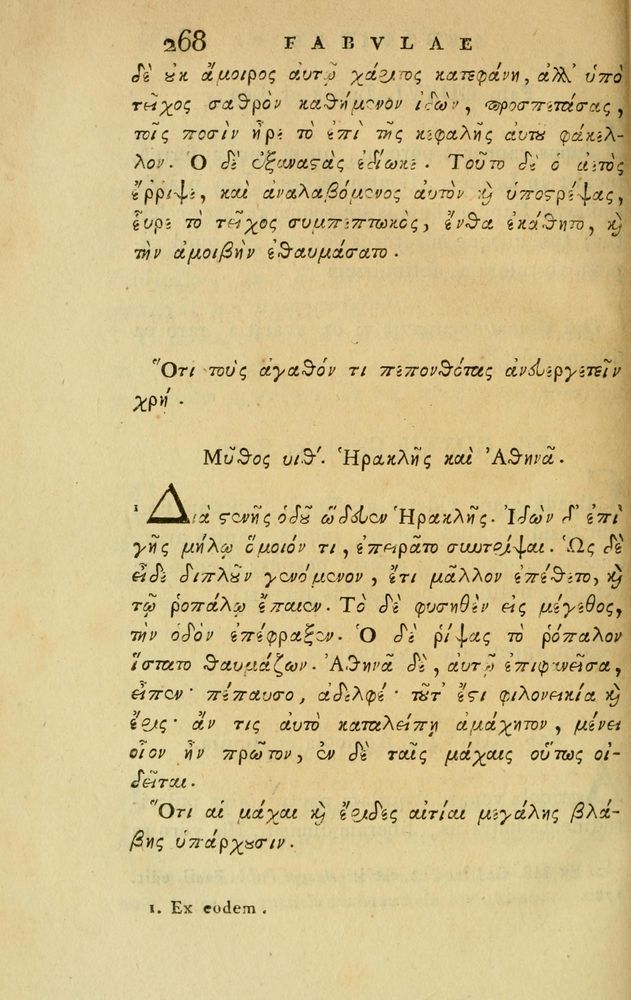 268 FABVLAE
δὲ ȣκ ἄμοιρος αὐτῷ χάριτος κατεφάνη, ἀλλ' ὑπὸ
τεῖχος σαθρὸν καθήμενον ἰδὼν, προσπετάσας,
τοῖς ποσὶν ἦρε τὸ ἐπὶ τῆς κεφαλῆς αὐτȣ φάκελ-
λον. Ὁ δὲ ἐξαναστὰς ἐδίωκε. Τοῦτο δὲ ὁ ἀετὸς
ἔρριψε, καὶ ἀναλαβόμενος αὐτὸν ϗ ὑποστρέψας,
εὗρε τὸ τεῖχος συμπεπτωκὸς, ἔνθα ἐκάθητο, ϗ
τὴν ἀμοιβὴν ἐθαυμάσατο.
Ὅτι τοὺς ἀγαθόν τι πεπονθότας ἀντευεργετεῖν
χρή.
Μῦθος υιθ'. Ἡρακλῆς καὶ Ἀθηνᾶ.
¹ Διὰ στενῆς ὁδοῦ ὥδευεν Ἡρακλῆς. Ἰδὼν δ' ἐπὶ
γῆς μήλῳ ὅμοιόν τι, ἐπειρᾶτο συντρίψαι. Ὡς δὲ
εἶδε διπλοῦν γενόμενον, ἔτι μᾶλλον ἐπέθετο, ϗ
τῷ ῥοπάλῳ ἔπαιεν. Τὸ δὲ φυσηθὲν εἰς μέγεθος,
τὴν ὁδὸν ἐπέφραξεν. Ὁ δὲ ῥίψας τὸ ῥόπαλον
ἵστατο θαυμάζων. Ἀθηνᾶ δὲ, αὐτῷ ἐπιφανεῖσα,
εἶπεν· πέπαυσο, ἀδελφέ· τοῦτ' ἔστι φιλονεικία ϗ
ἔρις· ἄν τις αὐτὸ καταλείπῃ ἀμάχητον, μένει
οἷον ἦν πρῶτον, ἐν δὲ ταῖς μάχαις οὕτως οἰ-
δεῖται.
Ὅτι αἱ μάχαι ϗ ἔριδες αἰτίαι μεγάλης βλά-
βης ὑπάρχȣσιν.
1. Ex eodem.